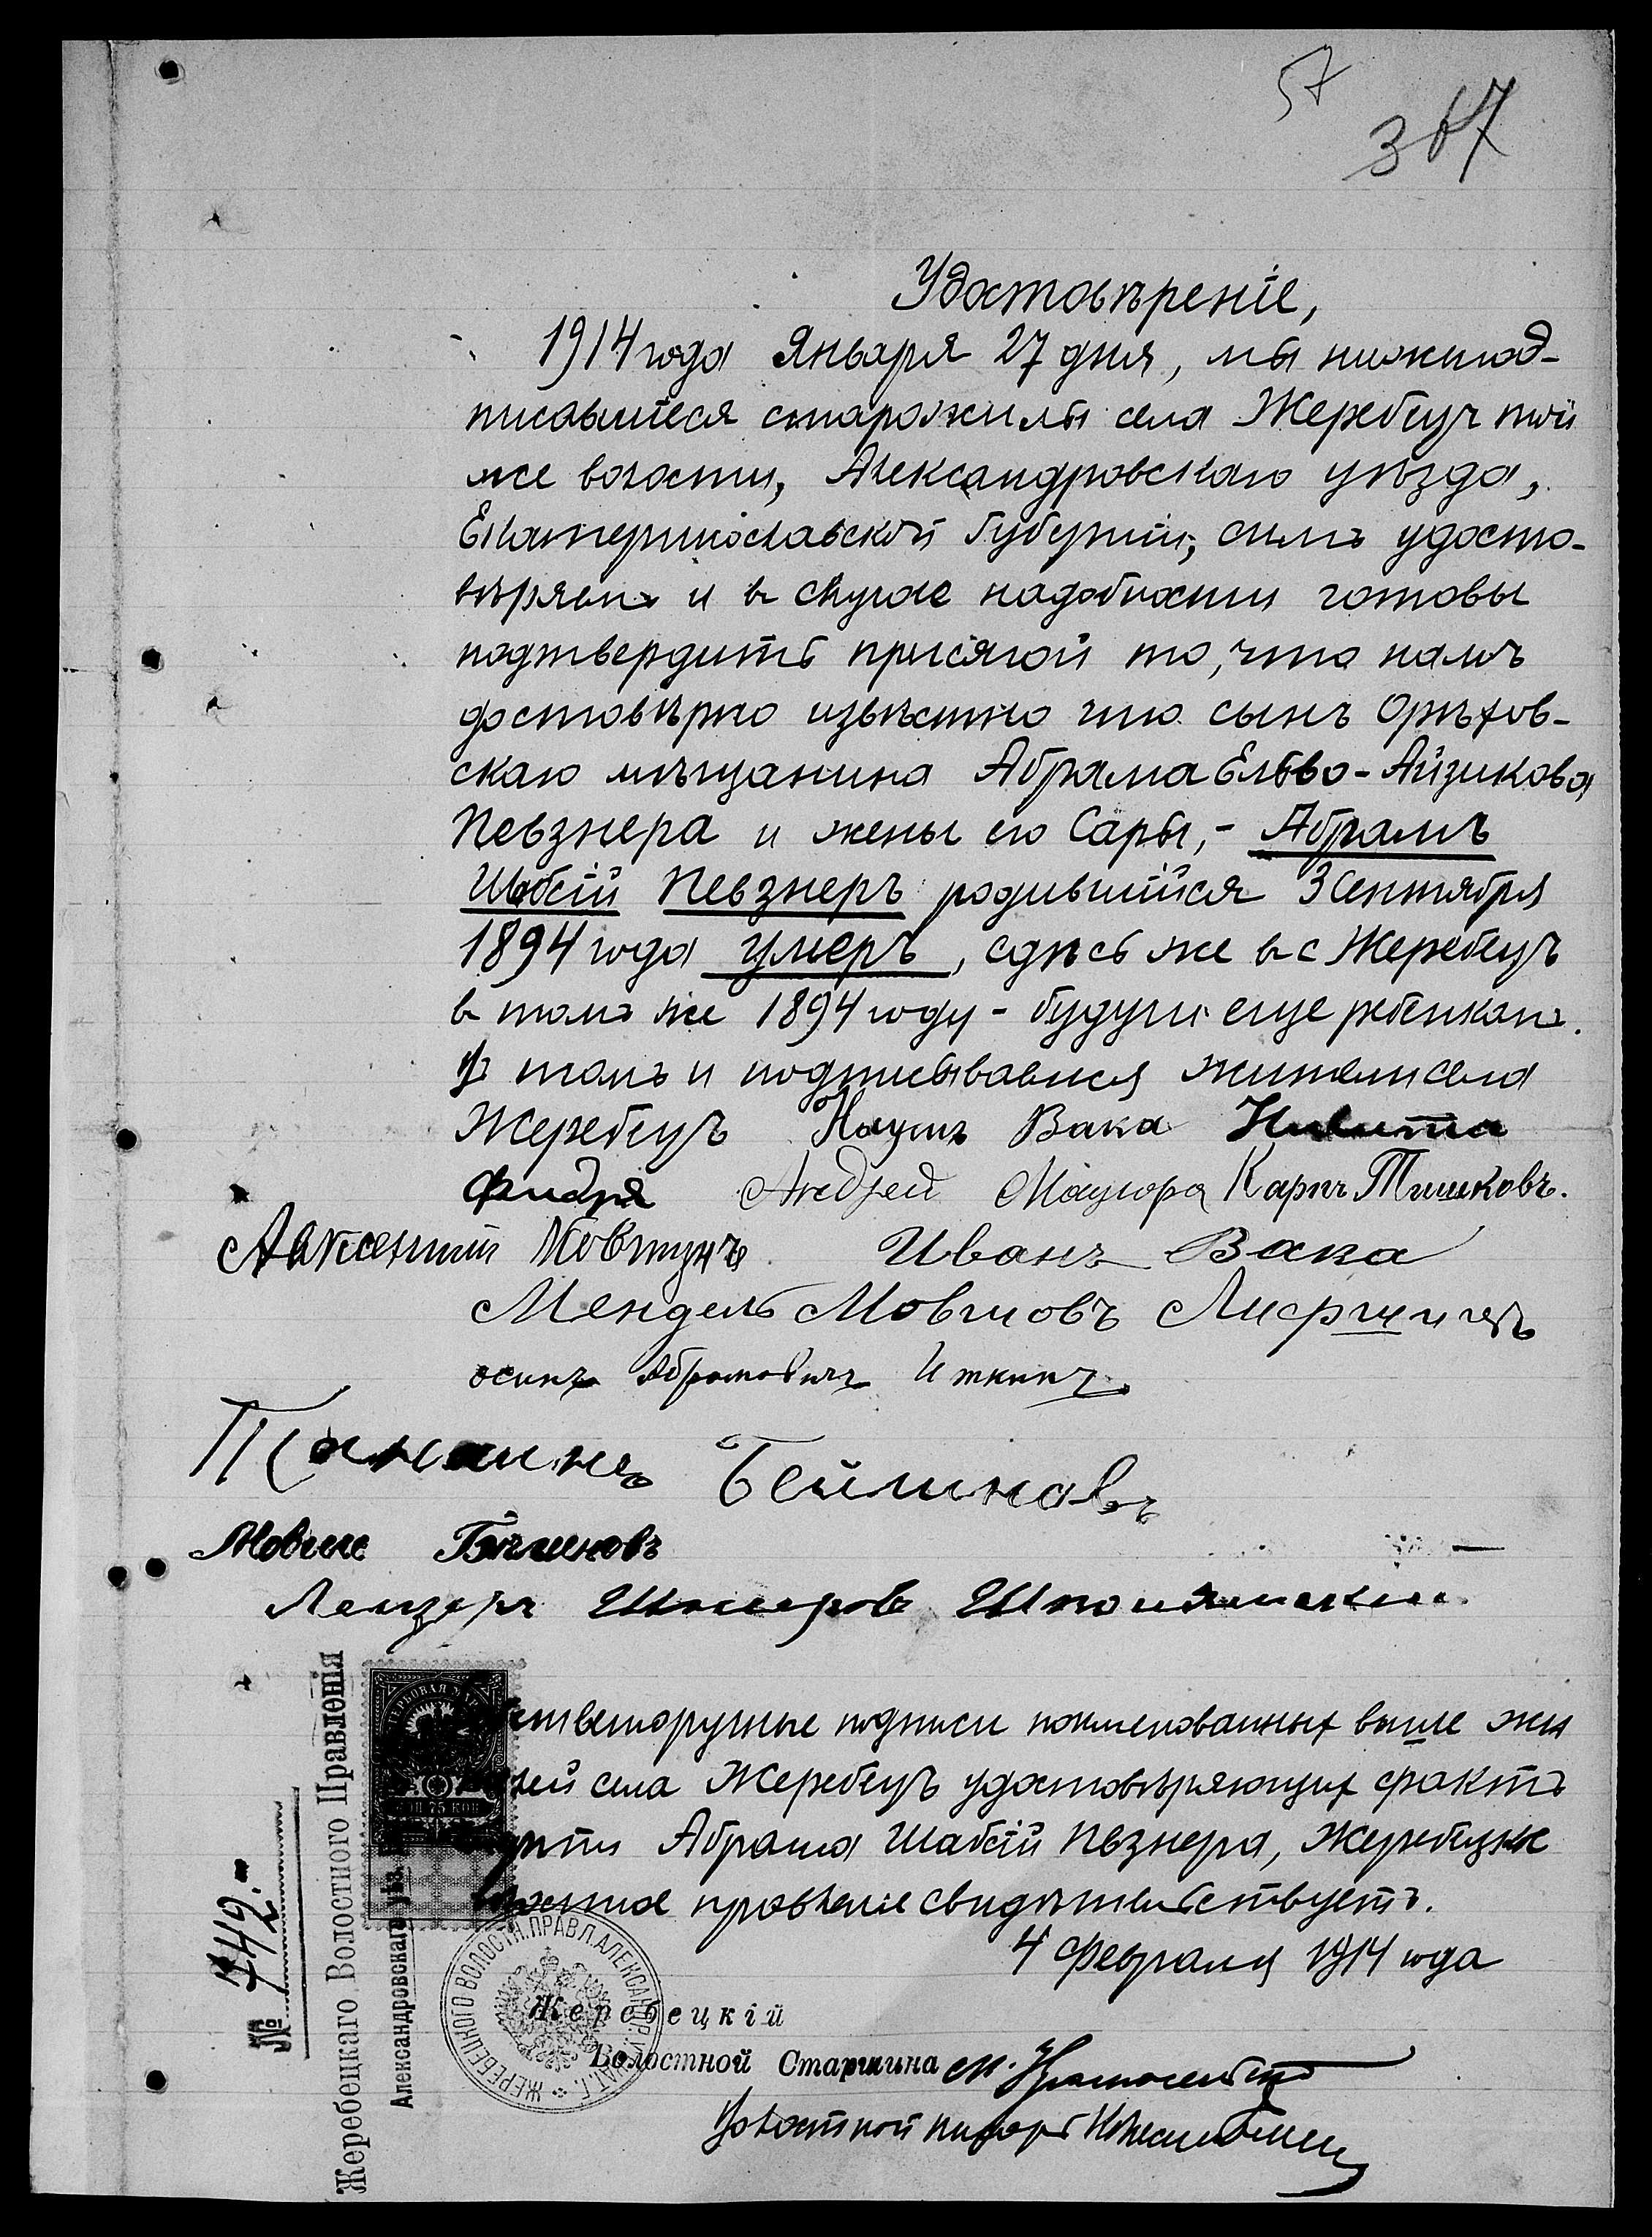 57
367
Удостовѣреніе,
1914 года Января 27 дня, мы нижепод-
писавшіеся старожилы села Жеребецъ той
же волости, Александровскаго уѣзда,
Екатеринославской губерніи, симъ удосто-
вѣряемъ и въ случае надобности готовы
подтвердить присягой то, что намъ
достовѣрно извѣстно что сынъ Орѣхов-
скаго мѣщанина Абрама Ельво-Айзикова
Певзнера и жены его Сары, - Абрамъ
Шабсій Певзнеръ родившійся 3 Сентября
1894 года умеръ, сдѣсь же в с Жеребецъ
в томъ же 1894 году - будучи еще ребенкомъ.
В томъ и подписываемся жители села
Жеребецъ Наумъ Вака Никита
Фидря Андрей Мацюра Карпъ Тишковъ.
Авксентий Ковтунъ Иванъ Вака
Мендель Мовшовъ
осипъ Абрамовичъ Иткинъ
Бейлиновъ
Мовше
Лейзеръ
ственоручные подписи поименованных выше жи
лей села Жеребецъ удостовѣряющих фактъ
смерти Абрама Шабсій Пвзнера, Жеребецкое
волостное правленіе свидѣтельствуетъ.
4 Февраля 1914 года
Жеребецкій
Волостной Старшина
Волостной писарь
№ 742.-
Жеребецкаго Волостного Правленія
Александровскаго уѣз.
ГЕРБОВАЯ МАРКА
75 КОП
ЖЕРЕБЕЦКОГО ВОЛОСТН. ПРАВЛ. АЛЕКСАНДР. У. ЕКАТ. Г.